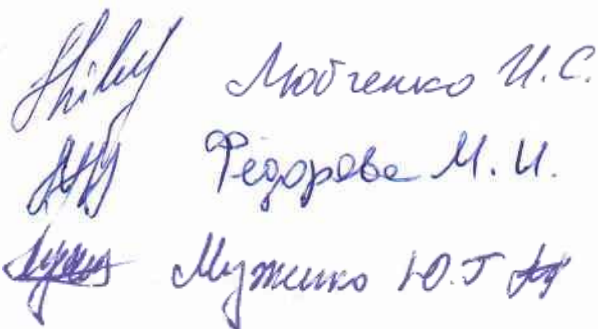 Любченко И.С.
Фёдорова М.И.
Мужичко Ю.Г